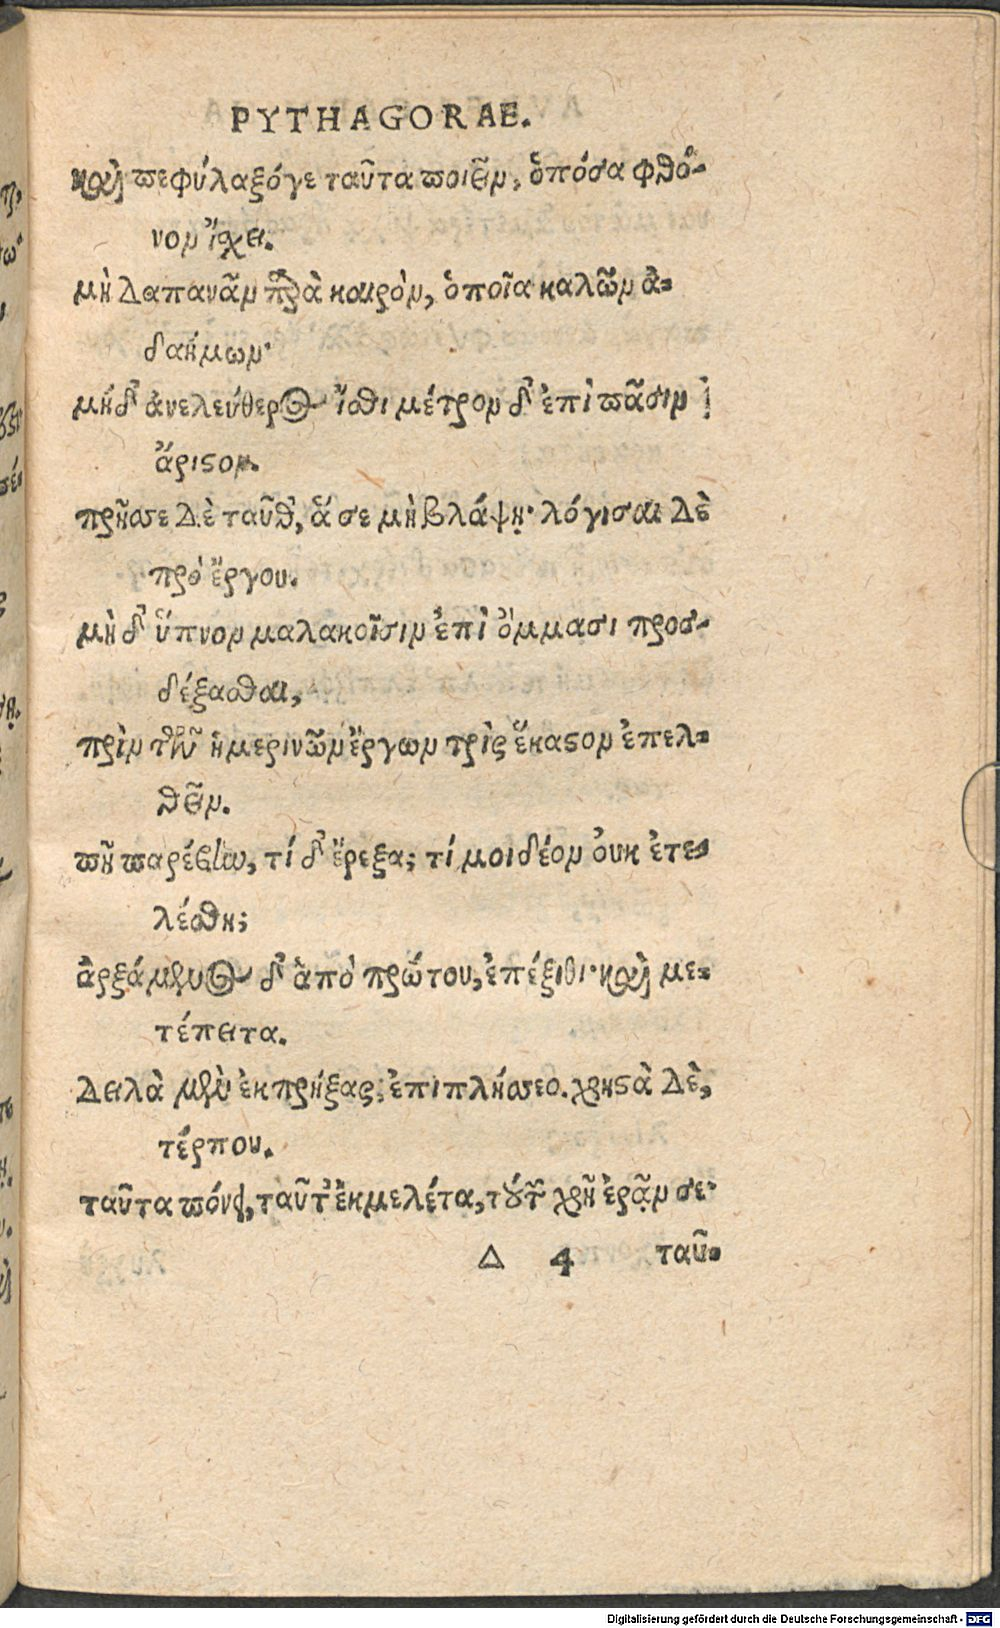 PYTHAGORAE.
καὶ πεφύλαξόγε ταῦτα ποιεῖν, ὁπόσα φθό-
νον ἴσχει.
μὴ δαπανᾶν παρὰ καιρὸν, ὁποῖα καλῶν ἀ-
δαήμων·
μὴ δ' ἀνελεύθερος ἴσθι μέτρον δ' ἐπὶ πᾶσιν
ἄριστον.
πρῆσσε δὲ ταῦθ', ἅ σε μὴ βλάψῃ· λόγισαι δὲ
πρὸ ἔργου.
μὴ δ' ὕπνον μαλακοῖσιν ἐπὶ ὄμμασι προσ-
δέξασθαι,
πρὶν τῶν ἡμερινῶν ἔργων τρὶς ἕκαστον ἐπελ-
θεῖν.
πῆ παρέβην, τί δ' ἔρεξα; τί μοι δέον οὐκ ἐτε-
λέσθη;
ἀρξάμενος δ' ἀπὸ πρώτου, ἐπέξιθι· καὶ με-
τέπειτα.
δειλὰ μὲν ἐκπρήξας, ἐπιπλήσσεο. χρηστὰ δὲ,
τέρπου.
ταῦτα πόνει, ταῦτ' ἐκμελέτα, τούτων χρὴ ἐρᾷν σε·
Δ 4 ταῦ-
Digitalisierung gefördert durch die Deutsche Forschungsgemeinschaft - DFG